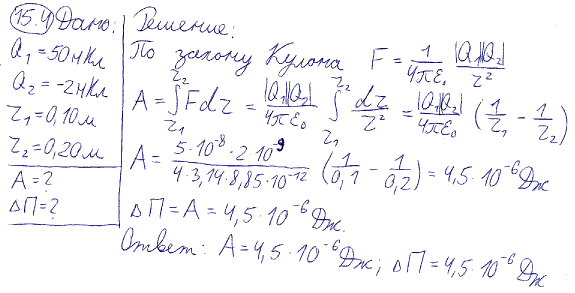 15.4 Дано:
Q₁ = 50 нКл
Q₂ = -2 нКл
r₁ = 0,10 м
r₂ = 0,20 м
A = ?
ΔП = ?
Решение:
По закону Кулона F = 1/(4πε₀) |Q₁||Q₂|/r²
A = ∫_{r₁}^{r₂} Fdr = |Q₁||Q₂|/(4πε₀) ∫_{r₁}^{r₂} dr/r² = |Q₁||Q₂|/(4πε₀) (1/r₁ - 1/r₂)
A = 5·10⁻⁸·2·10⁻⁹/(4·3,14·8,85·10⁻¹²) (1/0,1 - 1/0,2) = 4,5·10⁻⁶ Дж
ΔП = A = 4,5·10⁻⁶ Дж.
Ответ: A = 4,5·10⁻⁶ Дж; ΔП = 4,5·10⁻⁶ Дж